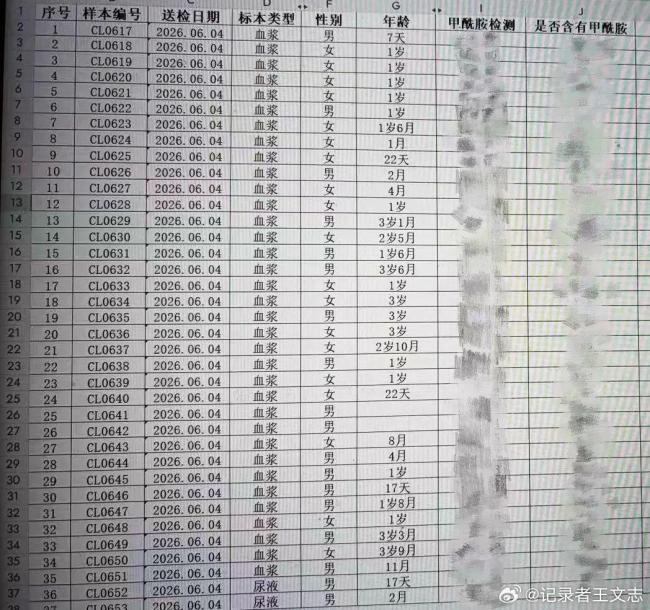 C D F G I J
1 序号 样本编号 送检日期 标本类型 性别 年龄 甲酰胺检测 是否含有甲酰胺
2 1 CL0617 2026.06.04 血浆 男 7天
3 2 CL0618 2026.06.04 血浆 女 1岁
4 3 CL0619 2026.06.04 血浆 女 1岁
5 4 CL0620 2026.06.04 血浆 女 1岁
6 5 CL0621 2026.06.04 血浆 女 1岁
7 6 CL0622 2026.06.04 血浆 男 1岁
8 7 CL0623 2026.06.04 血浆 女 1岁6月
9 8 CL0624 2026.06.04 血浆 女 1月
10 9 CL0625 2026.06.04 血浆 女 22天
11 10 CL0626 2026.06.04 血浆 男 2月
12 11 CL0627 2026.06.04 血浆 女 4月
13 12 CL0628 2026.06.04 血浆 女 1岁
14 13 CL0629 2026.06.04 血浆 男 3岁1月
15 14 CL0630 2026.06.04 血浆 女 2岁5月
16 15 CL0631 2026.06.04 血浆 男 1岁6月
17 16 CL0632 2026.06.04 血浆 男 3岁6月
18 17 CL0633 2026.06.04 血浆 女 1岁
19 18 CL0634 2026.06.04 血浆 女 3岁
20 19 CL0635 2026.06.04 血浆 男 3岁
21 20 CL0636 2026.06.04 血浆 女 3岁
22 21 CL0637 2026.06.04 血浆 女 2岁10月
23 22 CL0638 2026.06.04 血浆 男 1岁
24 23 CL0639 2026.06.04 血浆 女 1岁
25 24 CL0640 2026.06.04 血浆 女 22天
26 25 CL0641 2026.06.04 血浆 男
27 26 CL0642 2026.06.04 血浆 男
28 27 CL0643 2026.06.04 血浆 女 8月
29 28 CL0644 2026.06.04 血浆 男 4月
30 29 CL0645 2026.06.04 血浆 男 1岁
31 30 CL0646 2026.06.04 血浆 男 17天
32 31 CL0647 2026.06.04 血浆 男 1岁8月
33 32 CL0648 2026.06.04 血浆 女 1岁
34 33 CL0649 2026.06.04 血浆 男 3岁3月
35 34 CL0650 2026.06.04 血浆 女 3岁9月
36 35 CL0651 2026.06.04 血浆 男 11月
37 36 CL0652 2026.06.04 尿液 男 17天
37 CL0653 2026.06.04 尿液 男 2月
@记录者王文志